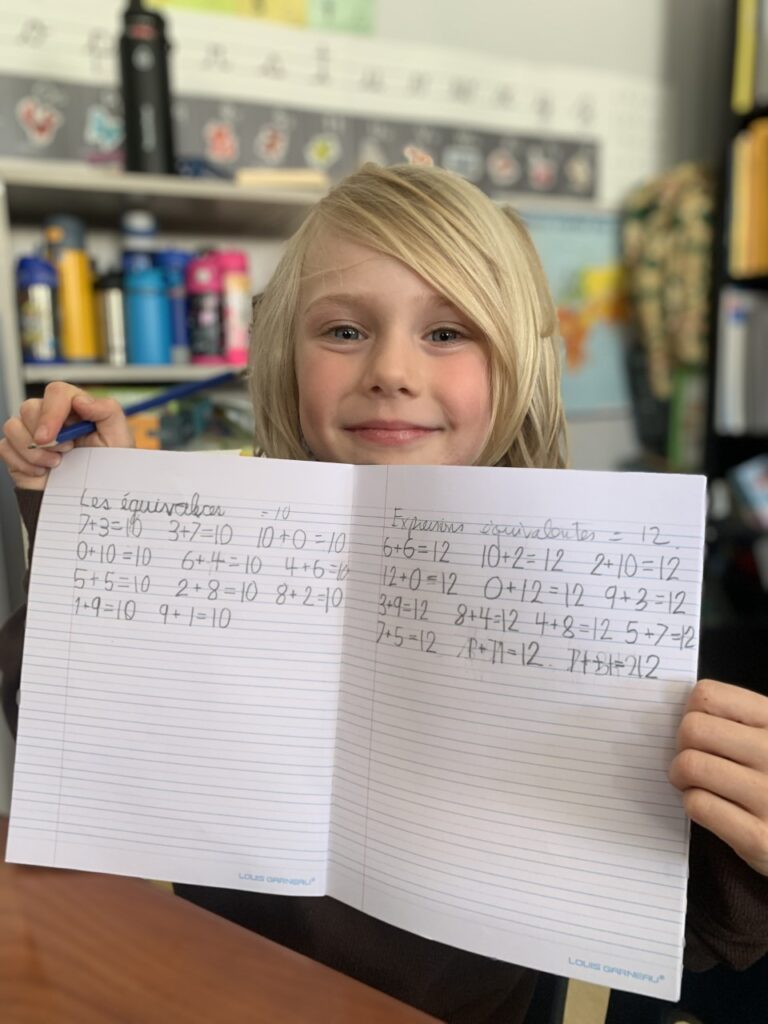 Les = 10
7+3=10 3+7=10 10+0=10
0+10=10 6+4=10 4+6=10
5+5=10 2+8=10 8+2=10
1+9=10 9+1=10
LOUIS GARNEAU®
Expressions équivalentes = 12
6+6=12 10+2=12 2+10=12
12+0=12 0+12=12 9+3=12
3+9=12 8+4=12 4+8=12 5+7=12
7+5=12
LOUIS GARNEAU®